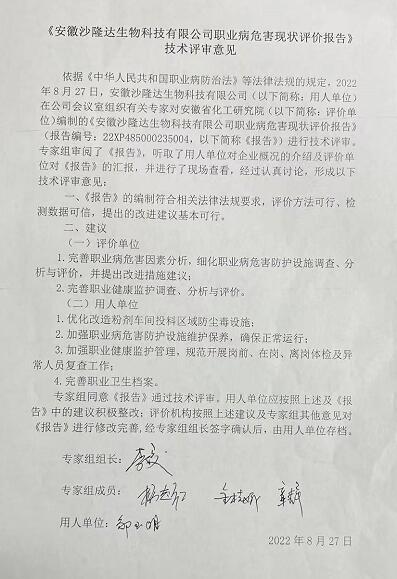 《安徽沙隆达生物科技有限公司职业病危害现状评价报告》
技术评审意见
依据《中华人民共和国职业病防治法》等法律法规的规定，2022
年 8 月 27 日，安徽沙隆达生物科技有限公司（以下简称：用人单位）
在公司会议室组织有关专家对安徽省化工研究院（以下简称：评价单
位）编制的《安徽沙隆达生物科技有限公司职业病危害现状评价报告》
（报告编号：22XP485000235004，以下简称《报告》）进行技术评审。
专家组审阅了《报告》，听取了用人单位对企业概况的介绍及评价单
位对《报告》的汇报，并进行了现场查看，经过认真讨论，形成以下
技术评审意见：
一、《报告》的编制符合相关法律法规要求，评价方法可行、检
测数据可信，提出的改进建议基本可行。
二、建议
（一）评价单位
1.完善职业病危害因素分析，细化职业病危害防护设施调查、分
析与评价，并提出改进措施建议；
2.完善职业健康监护调查、分析与评价。
（二）用人单位
1.优化改造粉剂车间投料区域防尘毒设施；
2.加强职业病危害防护设施维护保养，确保正常运行；
3.加强职业健康监护管理，规范开展岗前、在岗、离岗体检及异
常人员复查工作；
4.完善职业卫生档案。
专家组同意《报告》通过技术评审。用人单位应按照上述及《报
告》中的建议积极整改；评价机构按照上述建议及专家组其他意见对
《报告》进行修改完善，经专家组组长签字确认后，由用人单位存档。
专家组组长：
专家组成员：
用人单位：
2022 年 8 月 27 日